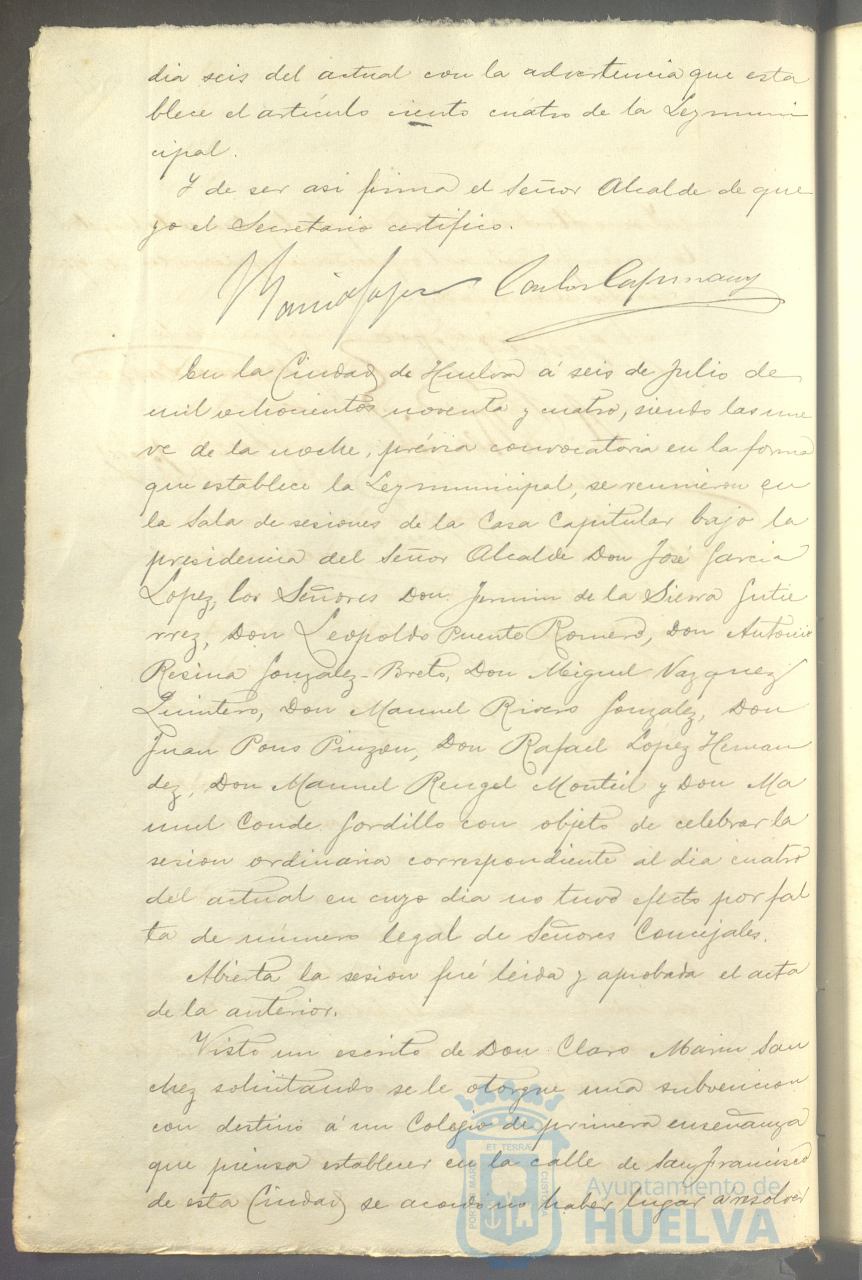 dia seis del actual con la advertencia que esta
blece el artículo ciento cuatro de la Ley muni
cipal.
Y de ser asi firma el Señor Alcalde de que
yo el Secretario certifico.
Carlos Capmany
En la Ciudad de Huelva á seis de Julio de
mil ochocientos noventa y cuatro, siendo las nue
ve de la noche, prévia convocatoria en la forma
que establece la Ley municipal, se reunieron en
la Sala de sesiones de la Casa Capitular bajo la
presidencia del Señor Alcalde Don José Garcia
Lopez, los Señores Don Fermin de la Sierra Gutie
rrez, Don Leopoldo Puente Romero, Don Antonio
Resina Gonzalez-Breto, Don Miguel Vazquez
Quintero, Don Manuel Rivero Gonzalez, Don
Juan Pons Pinzon, Don Rafael Lopez Hernan
dez, Don Manuel Rengel Montiel y Don Ma
nuel Conde Gordillo con objeto de celebrar la
sesion ordinaria correspondiente al dia cuatro
del actual en cuyo dia no tuvo efecto por fal
ta de número legal de Señores Concejales.
Abierta la sesion fué leida y aprobada el acta
de la anterior.
Visto un escrito de Don Claro Marin San
chez solicitando se le otorgue una subvencion
con destino á un Colegio de primera enseñanza
que piensa establecer en la calle de San Francisco
de esta Ciudad se acordó no haber lugar á resolver
PORTUS MARIS ET TERRÆ CUSTODIA
Ayuntamiento de
HUELVA